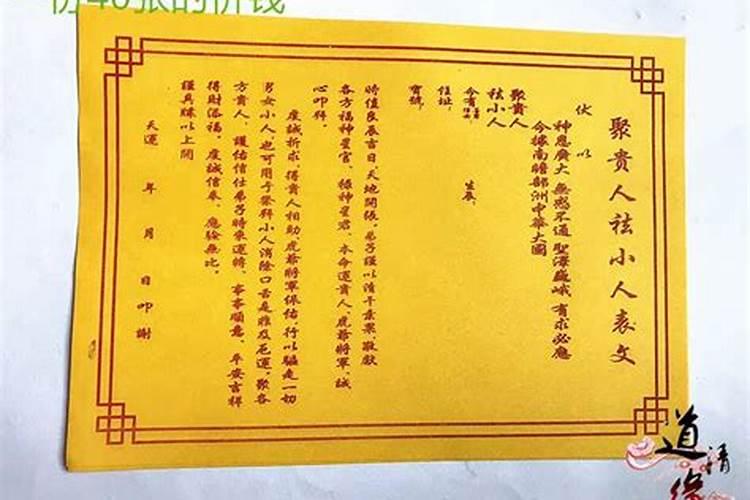 份40张的价钱
聚貴人祛小人表文
伏以
神恩廣大 無感不通 聖澤巍峨 有求必應
今據南瞻部洲中華大國
聚貴人
祛小人
今有
生辰
住址
寶號
時值良辰吉日，天地開張，弟子謹以清干素果敬獻
各方福神星官，祿神星君，本命運貴人，虎爺將軍，誠
心叩拜。
虔誠祈求，得貴人相助虎爺將軍保佑行以驅走一切
男女小人，也可用于祭拜小人消除口舌是非及厄運，聚各
方貴人，護佑信仕弟子時來運轉，事事順意，平安吉祥
得財添福，虔誠信奉，應驗無比。
謹具牒以上聞
天運 年 月 日叩謝
道清緣